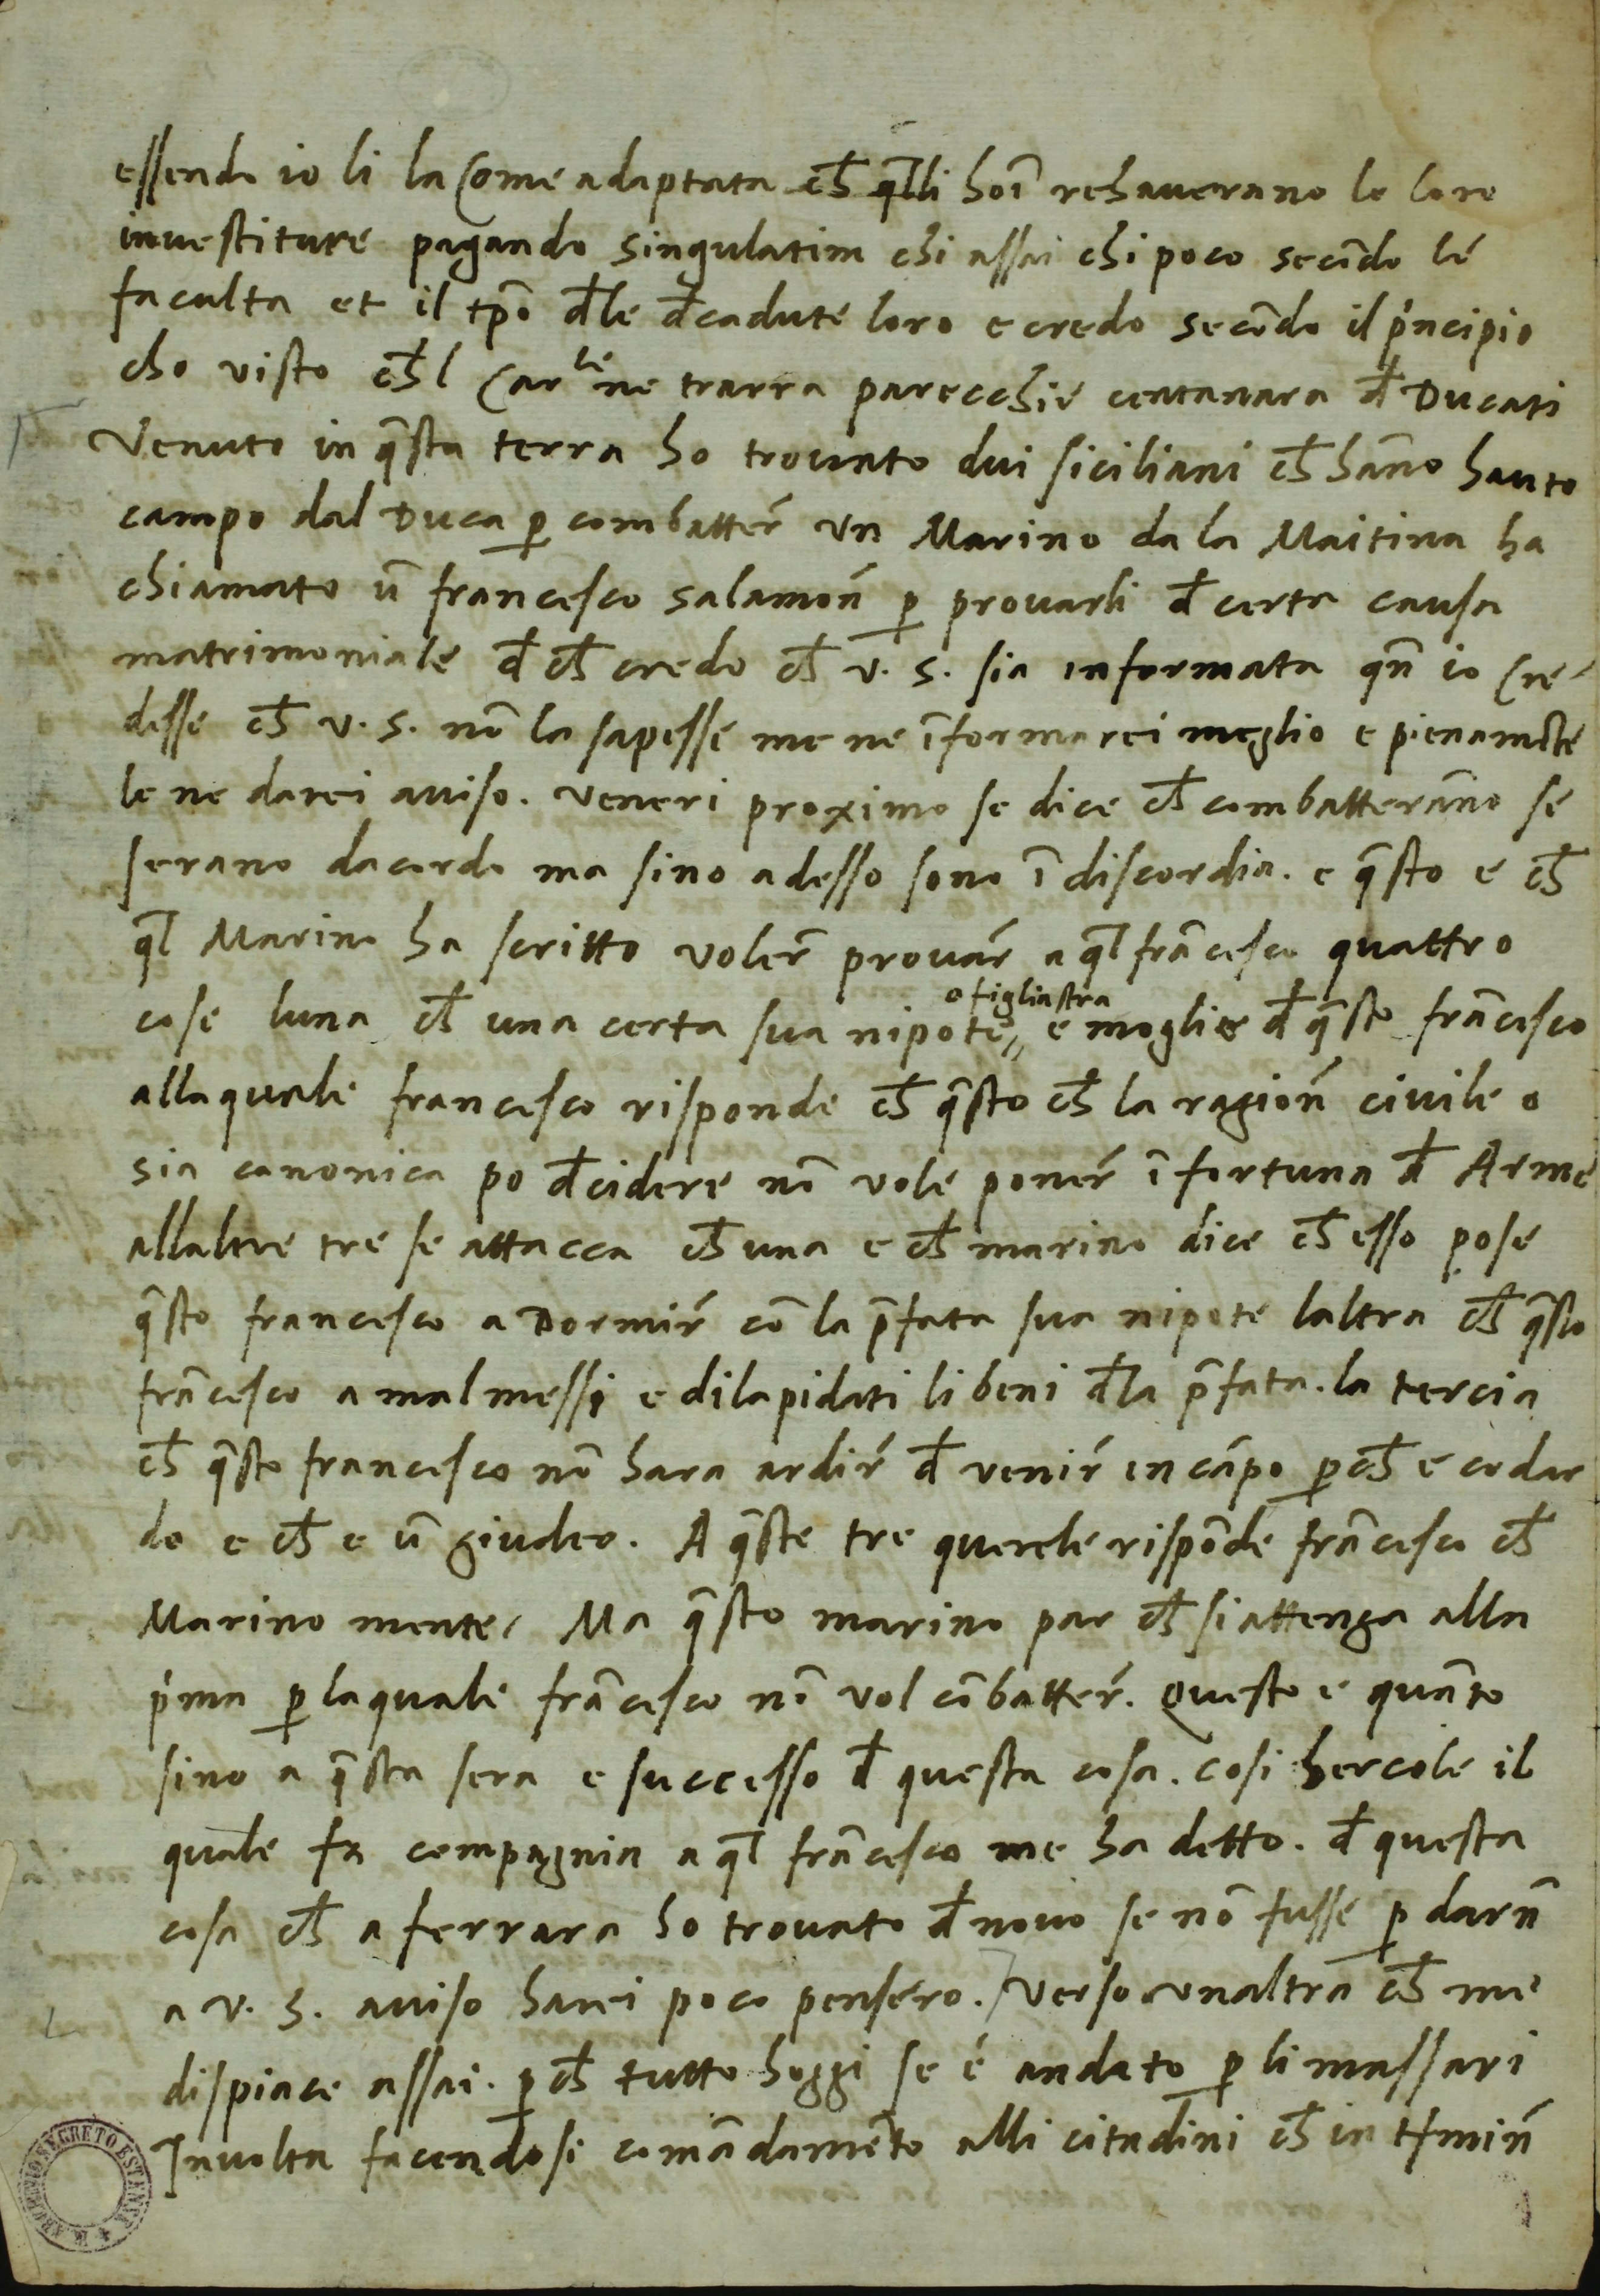 essendo io li la Come adaptata ch̄ q̄lli hoī rehaverano le loro
investiture pagando singulatim chi assai chi poco secōdo le
faculta et il tp̄o d̄le d̄cadute loro e credo secōdo il p'ncipio
cho visto ch̄l Carle ne trarra parecchie centanara d̄ Ducati
Venuto in q̄sta terra ho trovato dui siciliani ch̄ hāno hauto
campo dal Duca p̱ combatter̄ Un Marino da la Maitina ha
chiamato ū francesco salamon̄ p̱ provarli d̄ certa causa
matrimoniale d̄ ch̄ credo ch̄ v. s. sia informata qn̄ io Cre
desse ch̄ v. s. nō la sapesse me ne īformarei meglio e pienamēte
le ne darei aviso. Veneri proximo se dice ch̄ combatterāno se
serano dacordo ma sino adesso sono ī discordia. e q̄sto e ch̄
q̄l Marino ha scritto voler̄ provar̄ a q̄l frācesco quattro
cose luna ch̄ una certa sua nipote o figliastra e moglie d̄ q̄sto frācesco
alla quale francesco risponde ch̄ q̄sto ch̄ la ragion̄ civile o
sia canonica po d̄cidere nō vole poner̄ ī fortuna d̄ Arme
allaltre tre se attacca ch̄ una e ch̄ marino dice ch̄ esso pose
q̄sto francesco a Dormir̄ cō la p̄fata sua nipote laltra ch̄ q̄sto
frācesco a mal messi e dilapidati li beni d̄la p̄fata. la tercia
ch̄ q̄sto francesco nō hara ardir̄ d̄ venir̄ in cāpo p̱ch̄ e codar
do e ch̄ e ū giudeo. A q̄ste tre querele rispōde frācesco ch̄
Marino mente, Ma q̄sto marino par ch̄ si attenga alla
p'ma p̱ laquale frācesco nō vol cōbatter̄. Questo e quāto
sino a q̄sta sera e successo d̄ questa cosa. cosi hercole il
quale fa compagnia a q̄l frācesco me ha detto. d̄ questa
cosa ch̄ a ferrara ho trovato d̄ novo se nō fusse p̱ darn̄
a v. s. aviso harei poco pensero. Verso unaltra ch̄ me
dispiace assai. p̱ch̄ tutto hoggi se é andato p̱ li massari
Involta facendosi comādamēto alli citadini ch̄ in tr̄min̄